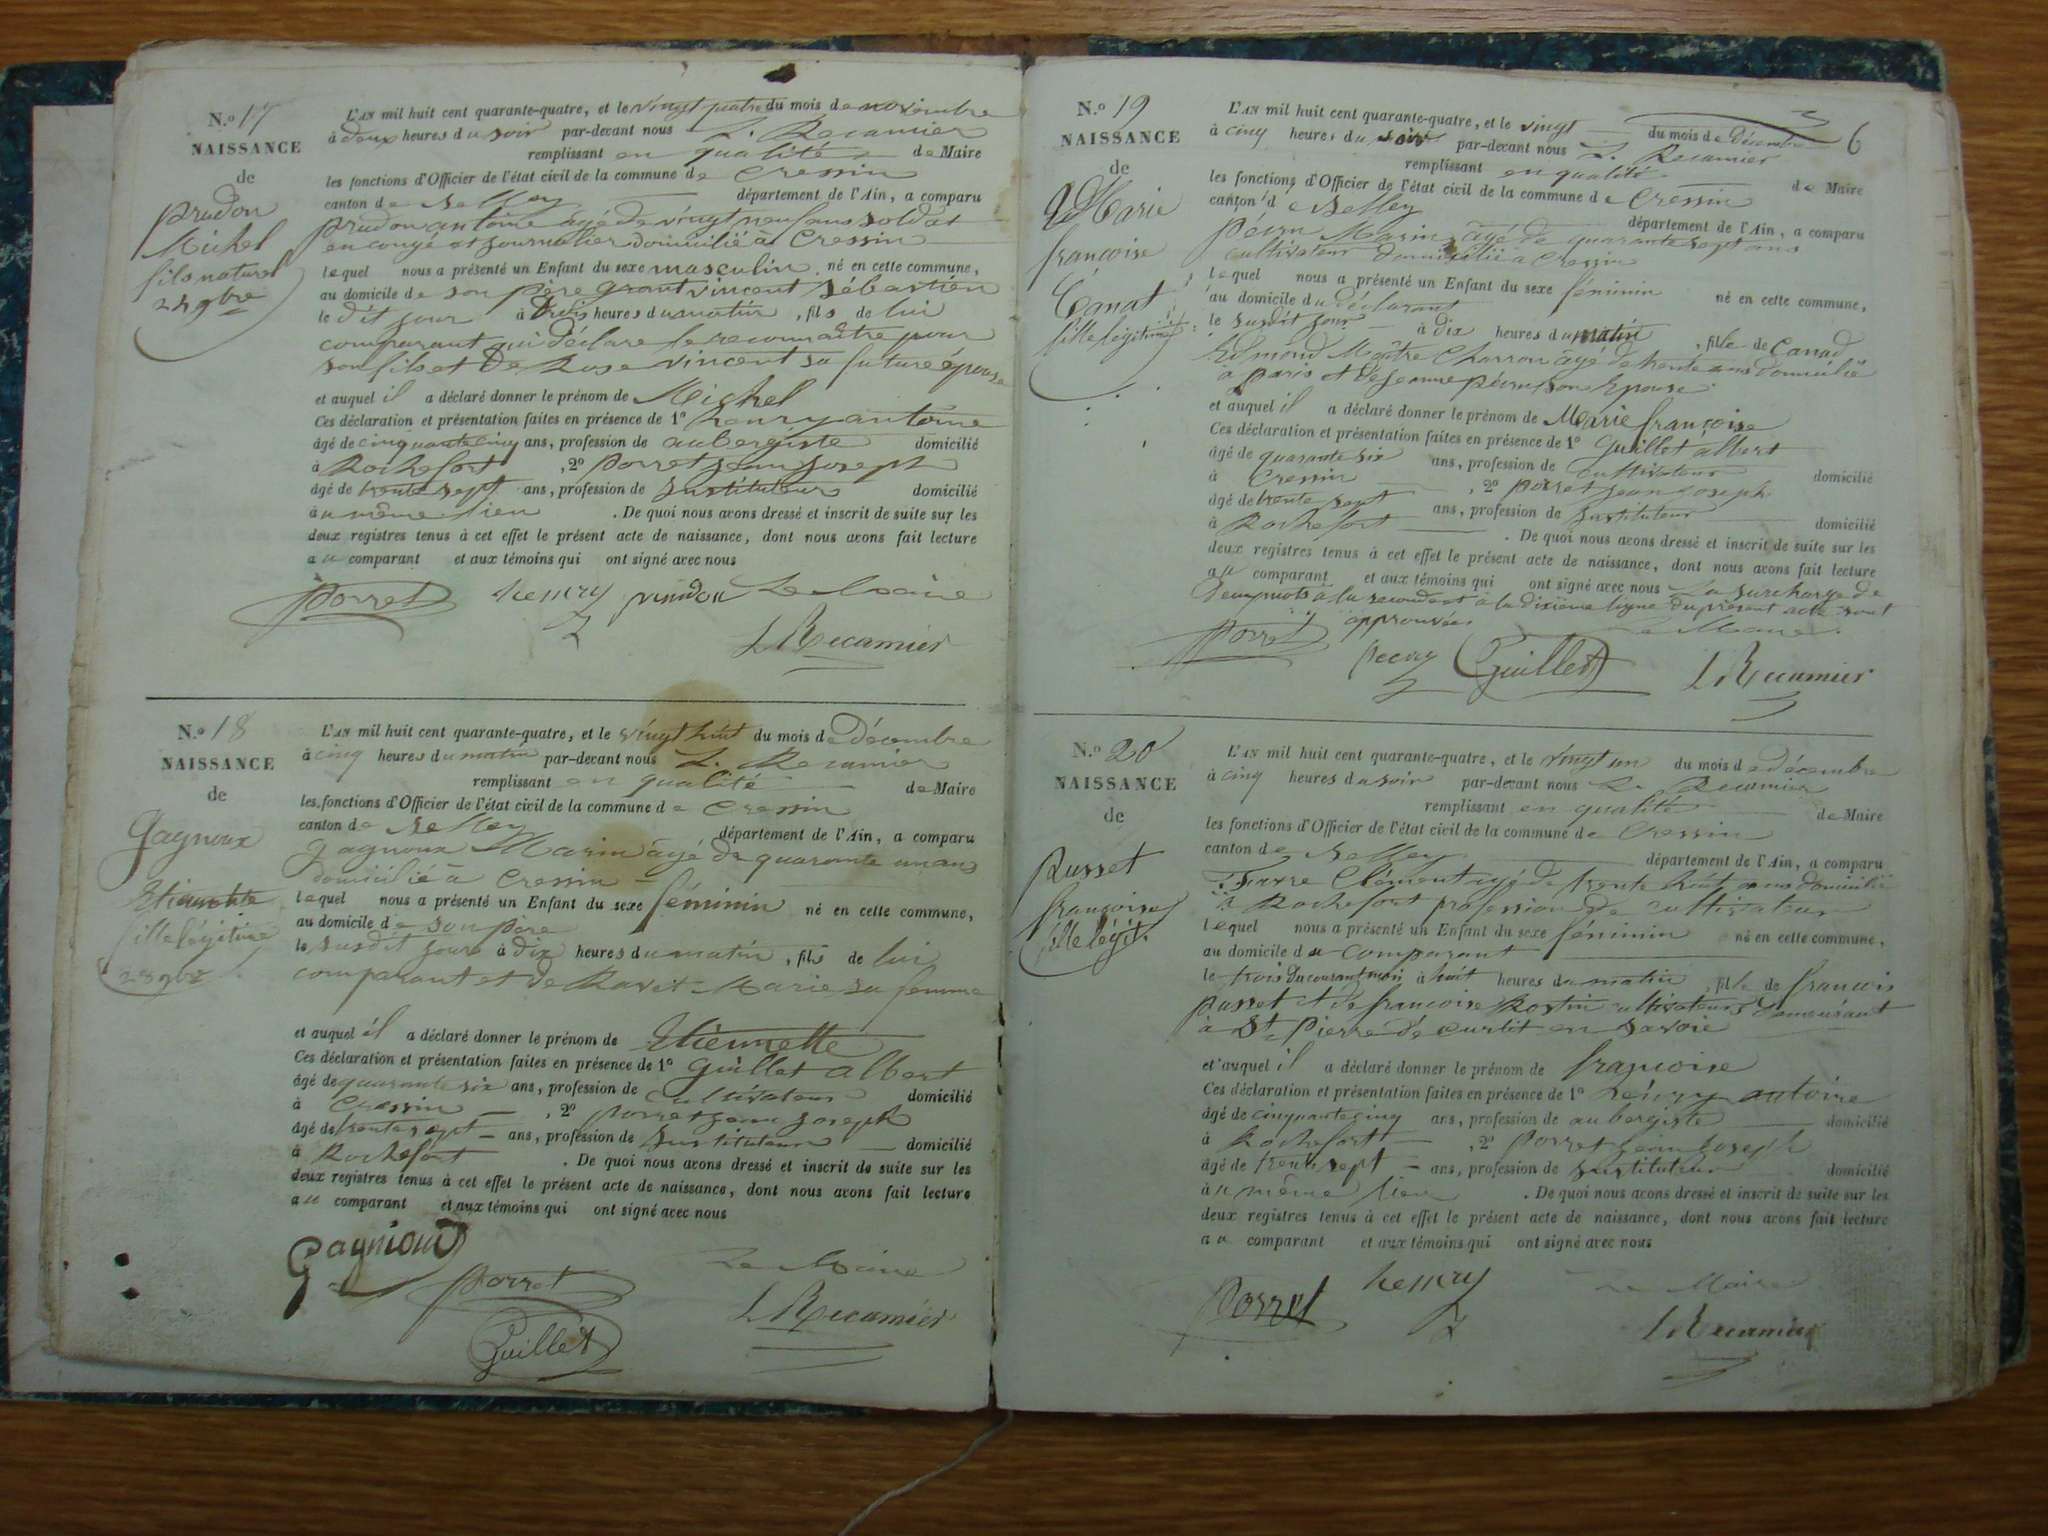 N.o 17
NAISSANCE
de
prudon
Michel
fils naturel
24 9bre
L'AN mil huit cent quarante-quatre, et le vingt quatre du mois de novembre
à deux heures du soir par-devant nous L. Recamier
remplissant en qualité de Maire
les fonctions d'Officier de l'état civil de la commune de Cressin
canton de Belley département de l'Ain, a comparu
prudon antoine agé de vingt neuf ans soldat
en congé et journalier domicilié à Cressin
lequel nous a présenté un Enfant du sexe masculin né en cette commune,
au domicile de son père grant vincent sébastien
le dit jour à trois heures du matin, fils de lui
comparant qui déclare le reconnaître pour
son fils et De Rose vincent sa future épouse
et auquel il a déclaré donner le prénom de Michel
Ces déclaration et présentation faites en présence de 1o henry antoine
âgé de cinquante cinq ans, profession de aubergiste domicilié
à Rochefort, 2o porret jean joseph
âgé de trente sept ans, profession de instituteur domicilié
au même lieu. De quoi nous avons dressé et inscrit de suite sur les
deux registres tenus à cet effet le présent acte de naissance, dont nous avons fait lecture
au comparant et aux témoins qui ont signé avec nous
Porret henry prudon Le Maire
L Recamier
N.o 18
NAISSANCE
de
Gagnoux
Etiennette
fille légitime
28 9bre
L'AN mil huit cent quarante-quatre, et le vingt huit du mois de décembre
à cinq heures du matin par-devant nous L. Recamier
remplissant en qualité de Maire
les fonctions d'Officier de l'état civil de la commune de Cressin
canton de Belley département de l'Ain, a comparu
Gagnoux Marin âgé de quarante un ans
domicilié à Cressin
lequel nous a présenté un Enfant du sexe féminin né en cette commune,
au domicile de son père
le susdit jour à dix heures du matin, fils de lui
comparant et de Ravet Marie sa femme
et auquel il a déclaré donner le prénom de Etiennette
Ces déclaration et présentation faites en présence de 1o Guillet albert
âgé de quarante six ans, profession de cultivateur domicilié
à Cressin, 2o porret jean joseph
âgé de trente sept ans, profession de instituteur domicilié
à Rochefort. De quoi nous avons dressé et inscrit de suite sur les
deux registres tenus à cet effet le présent acte de naissance, dont nous avons fait lecture
au comparant et aux témoins qui ont signé avec nous
Gagnioud
Porret Le Maire
Guillet L Recamier
6
N.o 19
NAISSANCE
de
Marie
françoise
Canat
fille légitime
L'AN mil huit cent quarante-quatre, et le vingt du mois de Décembre
à cinq heures du soir par-devant nous L. Recamier
remplissant en qualité de Maire
les fonctions d'Officier de l'état civil de la commune de Cressin
canton de Belley département de l'Ain, a comparu
Marin âgé de quarante sept ans
cultivateur domicilié à Cressin
lequel nous a présenté un Enfant du sexe féminin né en cette commune,
au domicile du déclarant
le susdit jour à dix heures du matin, fille de Canad
Edmond Maître Charron âgé de trente ans domicilié
à paris et de jeanne son Epouse
et auquel il a déclaré donner le prénom de Marie françoise
Ces déclaration et présentation faites en présence de 1o Guillet albert
âgé de quarante six ans, profession de cultivateur domicilié
à Cressin, 2o porret jean joseph
âgé de trente sept ans, profession de instituteur domicilié
à Rochefort. De quoi nous avons dressé et inscrit de suite sur les
deux registres tenus à cet effet le présent acte de naissance, dont nous avons fait lecture
au comparant et aux témoins qui ont signé avec nous La surcharge de
deux mots à la seconde et à la dixième ligne du présent acte sont
approuvées Le Maire
Porret Guillet L Recamier
N.o 20
NAISSANCE
de
Russet
françoise
fille légit.
L'AN mil huit cent quarante-quatre, et le vingt un du mois de décembre
à cinq heures du soir par-devant nous L. Recamier
remplissant en qualité de Maire
les fonctions d'Officier de l'état civil de la commune de Cressin
canton de Belley département de l'Ain, a comparu
Favre Clément agé de trente huit ans domicilié
à Rochefort profession de cultivateur
lequel nous a présenté un Enfant du sexe féminin né en cette commune,
au domicile du comparant
le trois du courant mois à huit heures du matin, fille de françois
Russet et de françoise Rostin cultivateurs demeurant
à St pierre de curtit en savoie
et auquel il a déclaré donner le prénom de françoise
Ces déclaration et présentation faites en présence de 1o henry antoine
âgé de cinquante cinq ans, profession de aubergiste domicilié
à Rochefort, 2o porret jean joseph
âgé de trente sept ans, profession de instituteur domicilié
au même lieu. De quoi nous avons dressé et inscrit de suite sur les
deux registres tenus à cet effet le présent acte de naissance, dont nous avons fait lecture
au comparant et aux témoins qui ont signé avec nous
Porret henry Le Maire
L Recamier